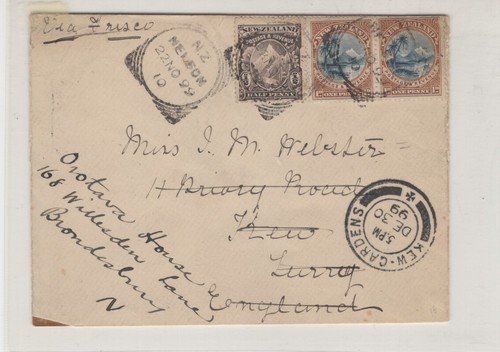 Via Frisco
N.Z
NELSON
22 NO 99
10
NEW ZEALAND
POSTAGE & REVENUE
HALF PENNY
NEW ZEALAND
1D ONE PENNY 1D
NEW ZEALAND
1D ONE PENNY 1D
Miss I. M. Webster
11 Priory Road
Kew
Surry
England
Orotava House
168 Willesden Lane
Brondesbury
N
KEW-GARDENS
5.PM
DE 30
99